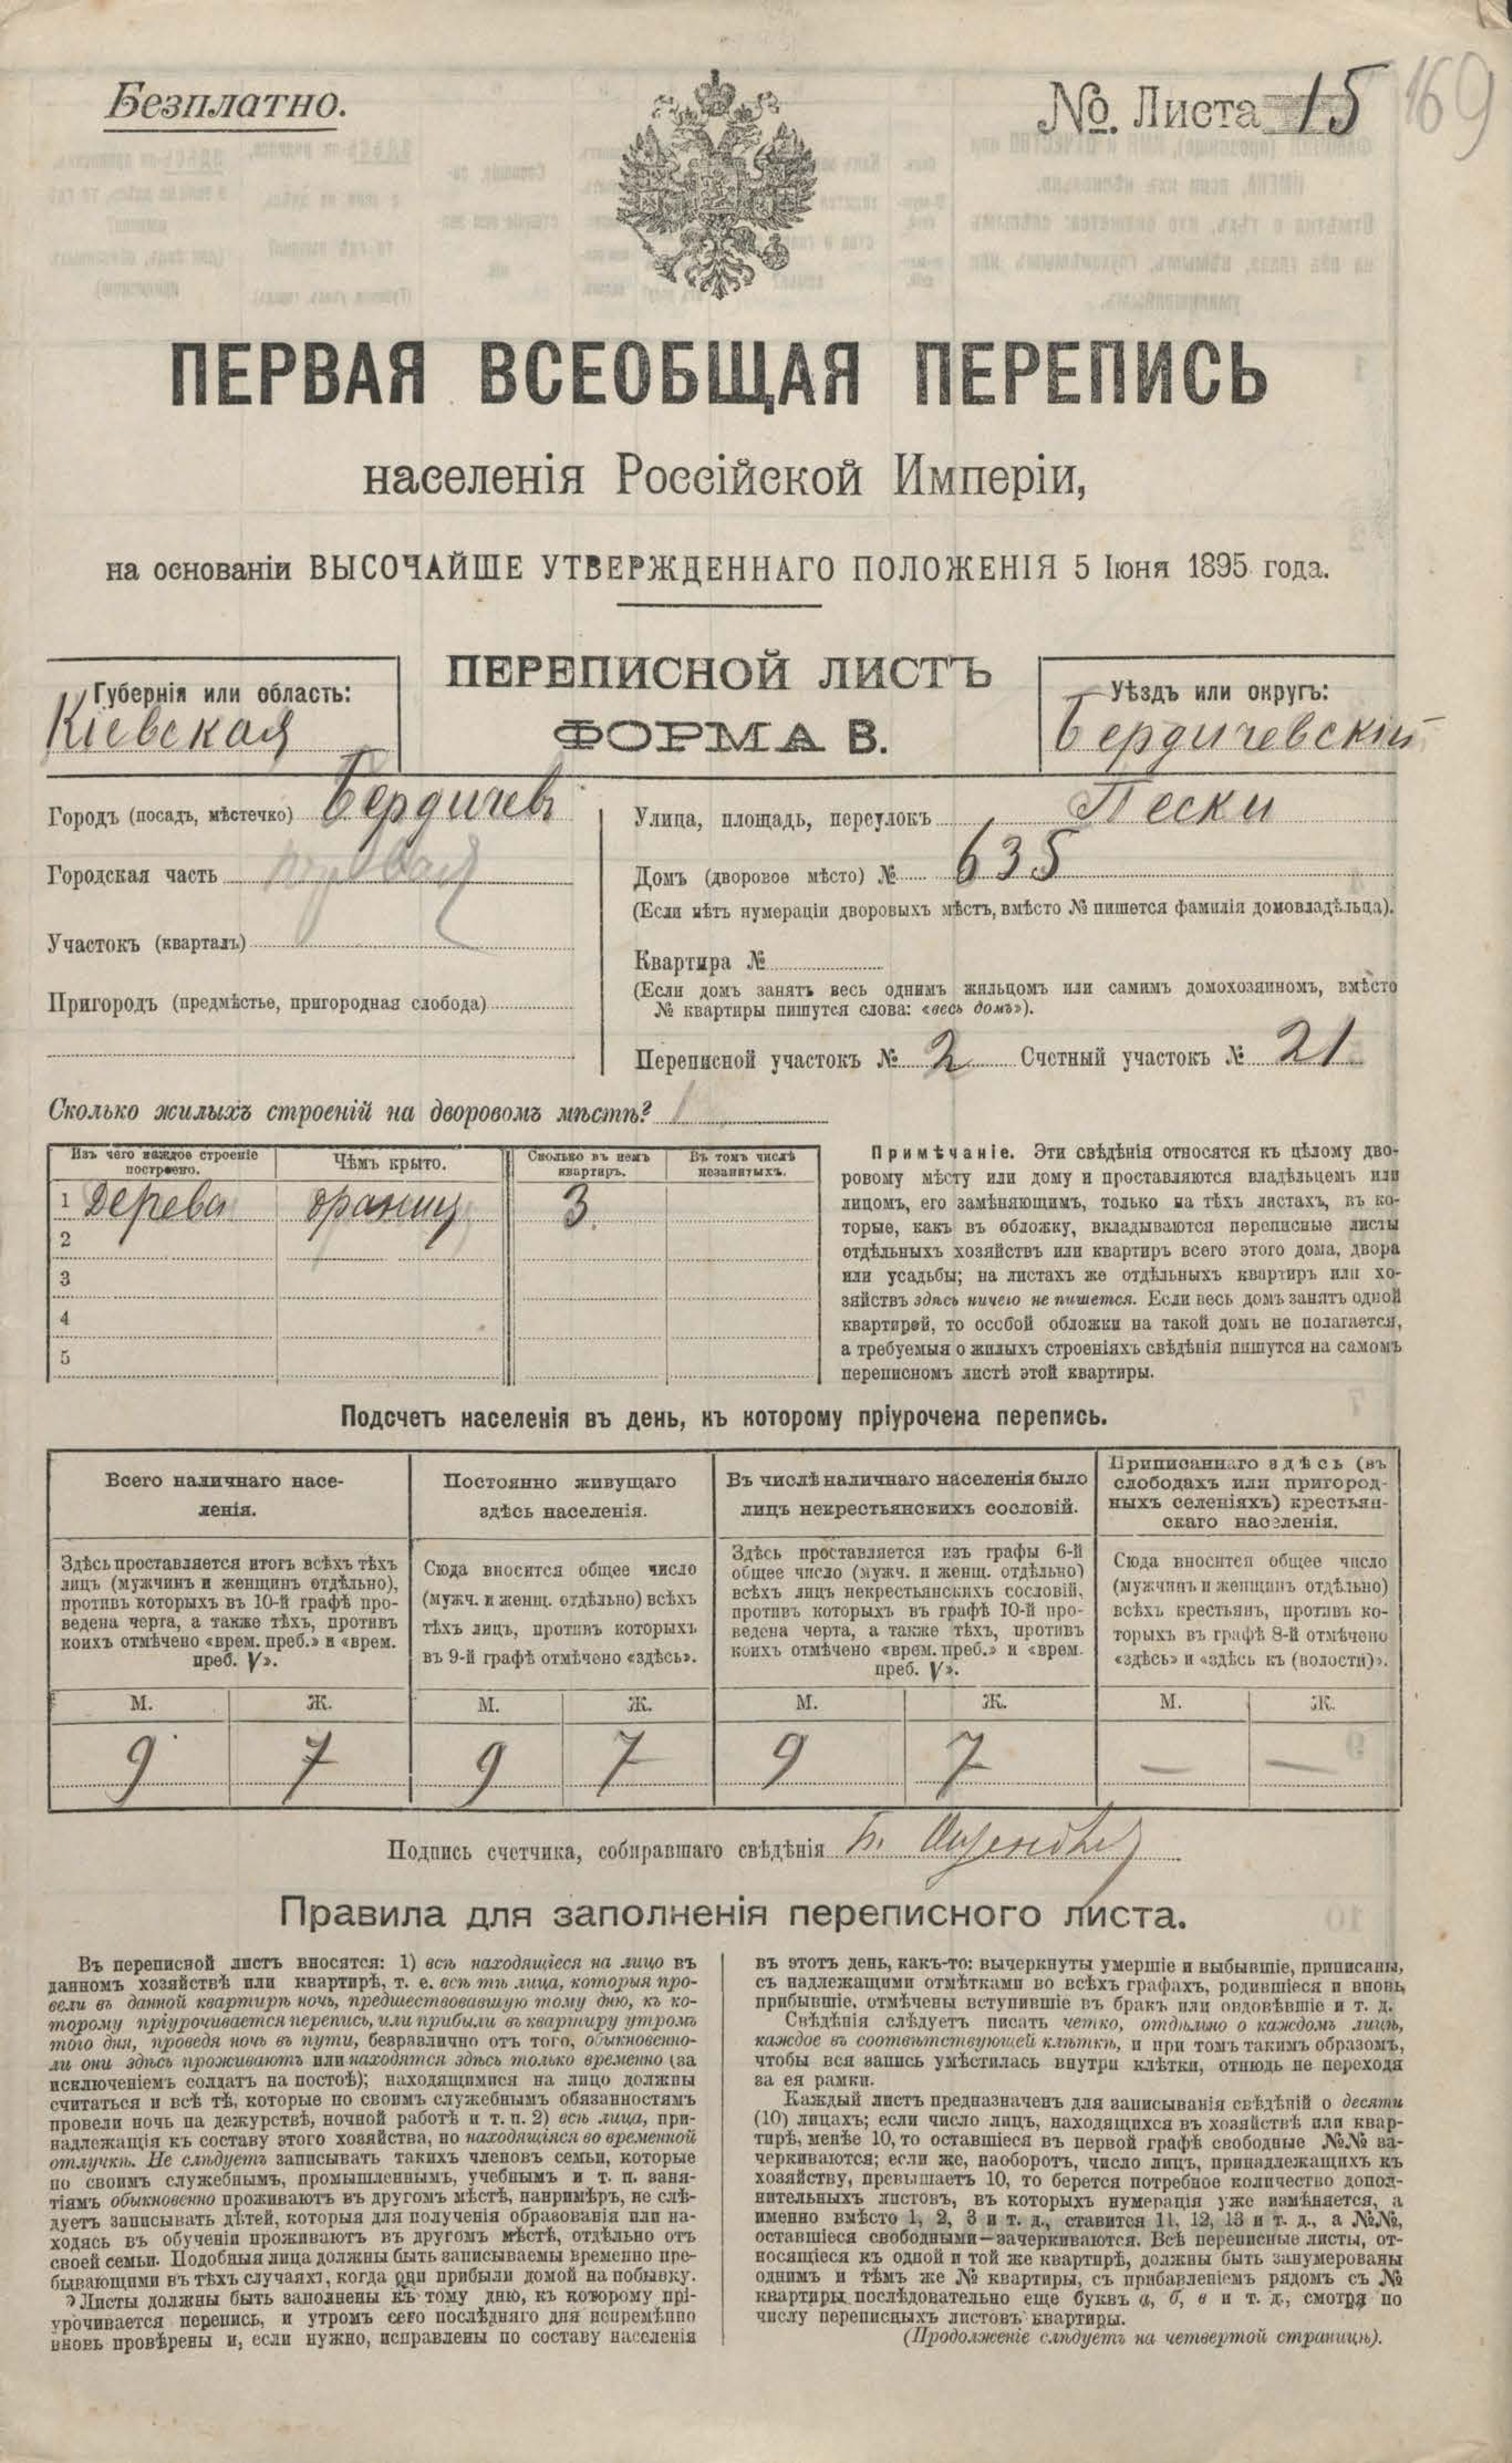 Безплатно.
№. Листа 15
169
ПЕРВАЯ ВСЕОБЩАЯ ПЕРЕПИСЬ
населенія Россійской Имперіи,
на основаніи ВЫСОЧАЙШЕ УТВЕРЖДЕННАГО ПОЛОЖЕНІЯ 5 Іюня 1895 года.
ПЕРЕПИСНОЙ ЛИСТЪ
ФОРМА В.
Губернія или область:
Кіевская
Уѣздъ или округъ:
Бердичевскій
Городъ (посадъ, мѣстечко) Бердичевъ
Городская часть
Участокъ (кварталъ)
Пригородъ (предмѣстье, пригородная слобода)
Улица, площадь, переулокъ Пески
Домъ (дворовое мѣсто) № 635
(Если нѣтъ нумераціи дворовыхъ мѣстъ, вмѣсто № пишется фамилія домовладѣльца).
Квартира №
(Если домъ занятъ весь однимъ жильцомъ или самимъ домохозяиномъ, вмѣсто
№ квартиры пишутся слова: «весь домъ»).
Переписной участокъ № 2 Счетный участокъ № 21
Сколько жилыхъ строеній на дворовомъ мѣстѣ? 1
Изъ чего каждое строеніе построено.
Чѣмъ крыто.
Сколько въ немъ квартиръ.
Въ томъ числѣ незанятыхъ.
1 Дерева 3
2
3
4
5
Примѣчаніе. Эти свѣдѣнія относятся къ цѣлому дво-
ровому мѣсту или дому и проставляются владѣльцемъ или
лицомъ, его замѣняющимъ, только на тѣхъ листахъ, въ ко-
торые, какъ въ обложку, вкладываются переписные листы
отдѣльныхъ хозяйствъ или квартиръ всего этого дома, двора
или усадьбы; на листахъ же отдѣльныхъ квартиръ или хо-
зяйствъ здѣсь ничего не пишется. Если весь домъ занятъ одной
квартирой, то особой обложки на такой домъ не полагается,
а требуемыя о жилыхъ строеніяхъ свѣдѣнія пишутся на самомъ
переписномъ листѣ этой квартиры.
Подсчетъ населенія въ день, къ которому пріурочена перепись.
Всего наличнаго насе-
ленія.
Здѣсь проставляется итогъ всѣхъ тѣхъ
лицъ (мужчинъ и женщинъ отдѣльно),
противъ которыхъ въ 10-й графѣ про-
ведена черта, а также тѣхъ, противъ
коихъ отмѣчено «врем. преб.» и «врем.
преб. V».
Постоянно живущаго
здѣсь населенія.
Сюда вносится общее число
(мужч. и женщ. отдѣльно) всѣхъ
тѣхъ лицъ, противъ которыхъ
въ 9-й графѣ отмѣчено «здѣсь».
Въ числѣ наличнаго населенія было
лицъ некрестьянскихъ сословій.
Здѣсь проставляется изъ графы 6-й
общее число (мужч. и женщ. отдѣльно)
всѣхъ лицъ некрестьянскихъ сословій,
противъ которыхъ въ графѣ 10-й про-
ведена черта, а также тѣхъ, противъ
коихъ отмѣчено «врем. преб.» и «врем.
преб. V».
Приписаннаго здѣсь (въ
слободахъ или пригород-
ныхъ селеніяхъ) крестьян-
скаго населенія.
Сюда вносится общее число
(мужчинъ и женщинъ отдѣльно)
всѣхъ крестьянъ, противъ ко-
торыхъ въ графѣ 8-й отмѣчено
«здѣсь» и «здѣсь къ (волости)».
М. Ж. М. Ж. М. Ж. М. Ж.
9 7 9 7 9 7 — —
Подпись счетчика, собиравшаго свѣдѣнія
Правила для заполненія переписного листа.
Въ переписной листъ вносятся: 1) всѣ находящіеся на лицо въ
данномъ хозяйствѣ или квартирѣ, т. е. всѣ тѣ лица, которыя про-
вели въ данной квартирѣ ночь, предшествовавшую тому дню, къ ко-
торому пріурочивается перепись, или прибыли въ квартиру утромъ
того дня, проведя ночь въ пути, безразлично отъ того, обыкновенно-
ли они здѣсь проживаютъ или находятся здѣсь только временно (за
исключеніемъ солдатъ на постоѣ); находящимися на лицо должны
считаться и всѣ тѣ, которые по своимъ служебнымъ обязанностямъ
провели ночь на дежурствѣ, ночной работѣ и т. п. 2) всѣ лица, при-
надлежащія къ составу этого хозяйства, но находящіяся во временной
отлучкѣ. Не слѣдуетъ записывать такихъ членовъ семьи, которые
по своимъ служебнымъ, промышленнымъ, учебнымъ и т. п. заня-
тіямъ обыкновенно проживаютъ въ другомъ мѣстѣ, напримѣръ, не слѣ-
дуетъ записывать дѣтей, которыя для полученія образованія или на-
ходясь въ обученіи проживаютъ въ другомъ мѣстѣ, отдѣльно отъ
своей семьи. Подобныя лица должны быть записываемы временно пре-
бывающими въ тѣхъ случаяхъ, когда они прибыли домой на побывку.
Листы должны быть заполнены къ тому дню, къ которому прі-
урочивается перепись, и утромъ сего послѣдняго дня непремѣнно
вновь провѣрены и, если нужно, исправлены по составу населенія
въ этотъ день, какъ-то: вычеркнуты умершіе и выбывшіе, приписаны,
съ надлежащими отмѣтками во всѣхъ графахъ, родившіеся и вновь
прибывшіе, отмѣчены вступившіе въ бракъ или овдовѣвшіе и т. д.
Свѣдѣнія слѣдуетъ писать четко, отдѣльно о каждомъ лицѣ,
каждое въ соотвѣтствующей клѣткѣ, и при томъ такимъ образомъ,
чтобы вся запись умѣстилась внутри клѣтки, отнюдь не переходя
за ея рамки.
Каждый листъ предназначенъ для записыванія свѣдѣній о десяти
(10) лицахъ; если число лицъ, находящихся въ хозяйствѣ или квар-
тирѣ, менѣе 10, то оставшіеся въ первой графѣ свободные №№ за-
черкиваются; если же, наоборотъ, число лицъ, принадлежащихъ къ
хозяйству, превышаетъ 10, то берется потребное количество допол-
нительныхъ листовъ, въ которыхъ нумерація уже измѣняется, а
именно вмѣсто 1, 2, 3 и т. д., ставится 11, 12, 13 и т. д., а №№,
оставшіеся свободными—зачеркиваются. Всѣ переписные листы, от-
носящіеся къ одной и той же квартирѣ, должны быть занумерованы
однимъ и тѣмъ же № квартиры, съ прибавленіемъ рядомъ съ №
квартиры последовательно еще буквъ а, б, в и т. д., смотря по
числу переписныхъ листовъ квартиры.
(Продолженіе слѣдуетъ на четвертой страницѣ).